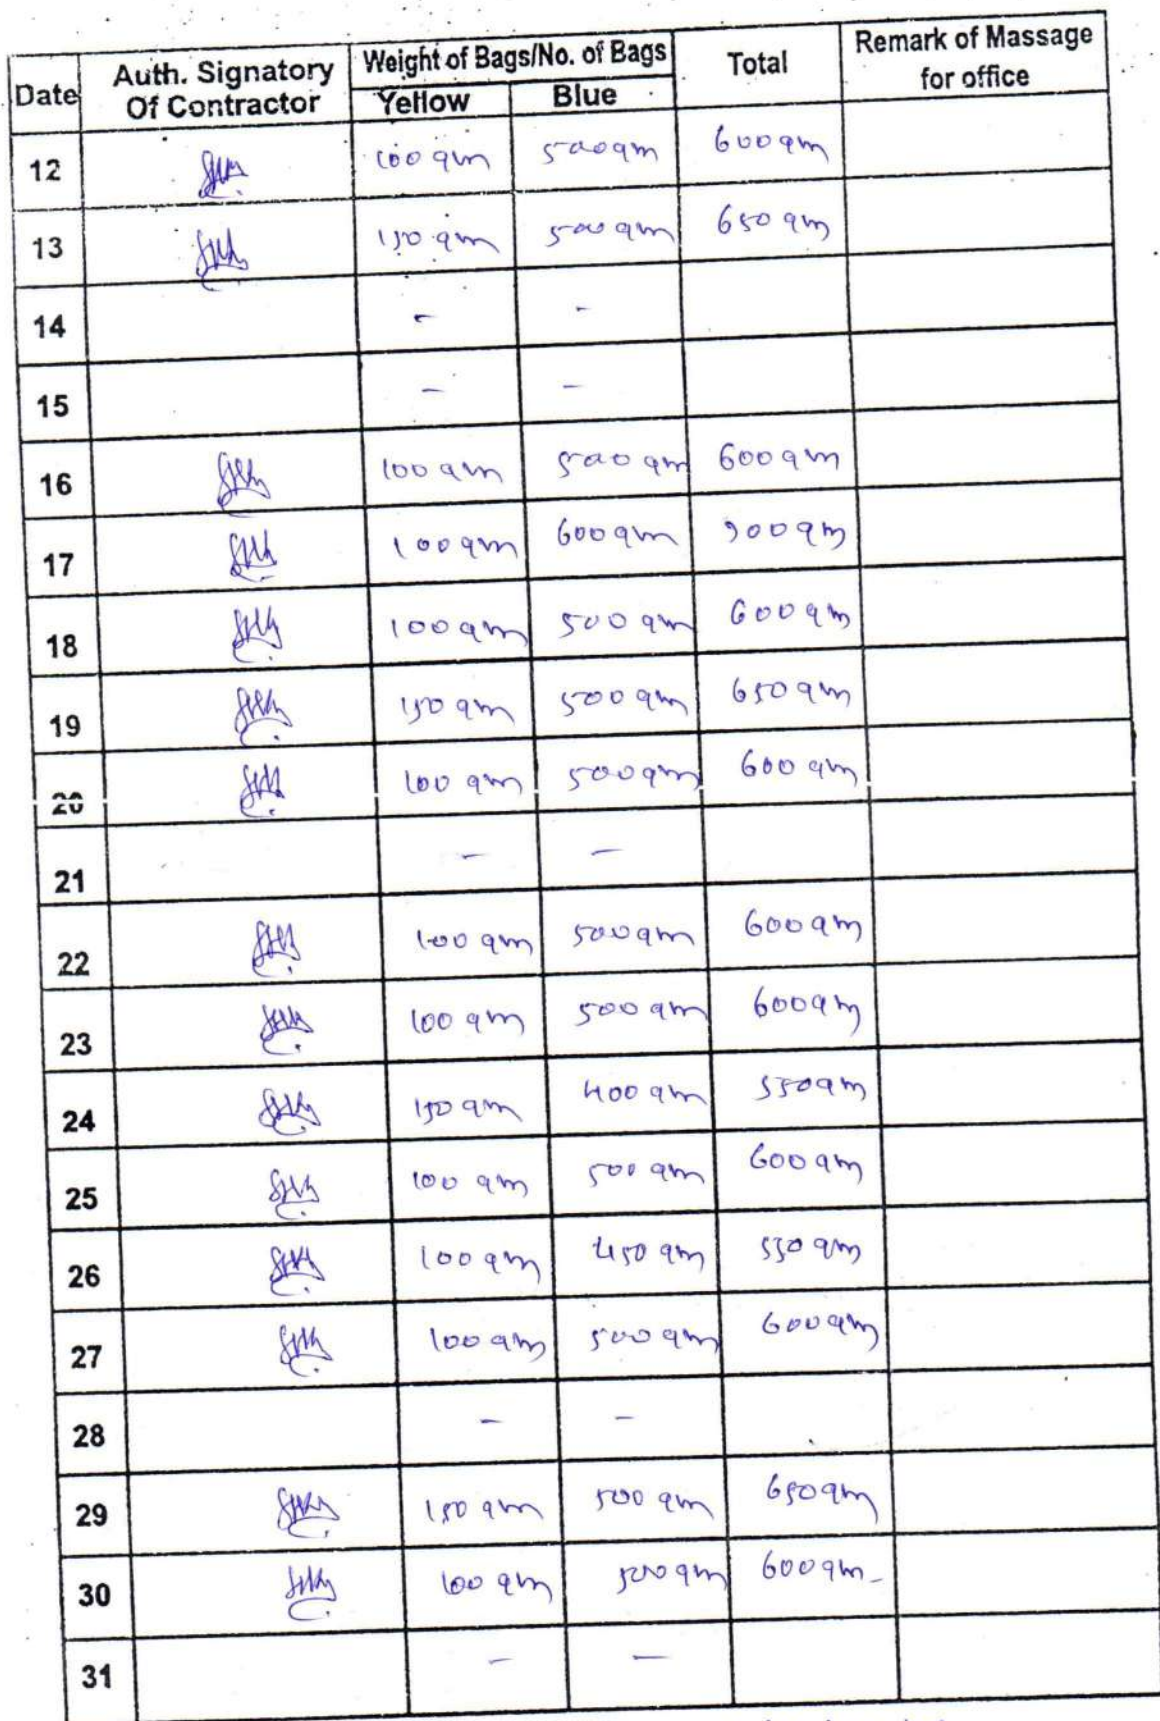 Date Auth. Signatory Of Contractor Weight of Bags/No. of Bags Yellow Blue Total Remark of Massage for office
12 100 gm 500 gm 600 gm
13 150 gm 500 gm 650 gm
14 - -
15 - -
16 100 gm 500 gm 600 gm
17 100 gm 600 gm 900 gm
18 100 gm 500 gm 600 gm
19 150 gm 500 gm 650 gm
20 100 gm 500 gm 600 gm
21 - -
22 100 gm 500 gm 600 gm
23 100 gm 500 gm 600 gm
24 150 gm 400 gm 550 gm
25 100 gm 500 gm 600 gm
26 100 gm 450 gm 550 gm
27 100 gm 500 gm 600 gm
28 - -
29 150 gm 500 gm 650 gm
30 100 gm 500 gm 600 gm -
31 - -